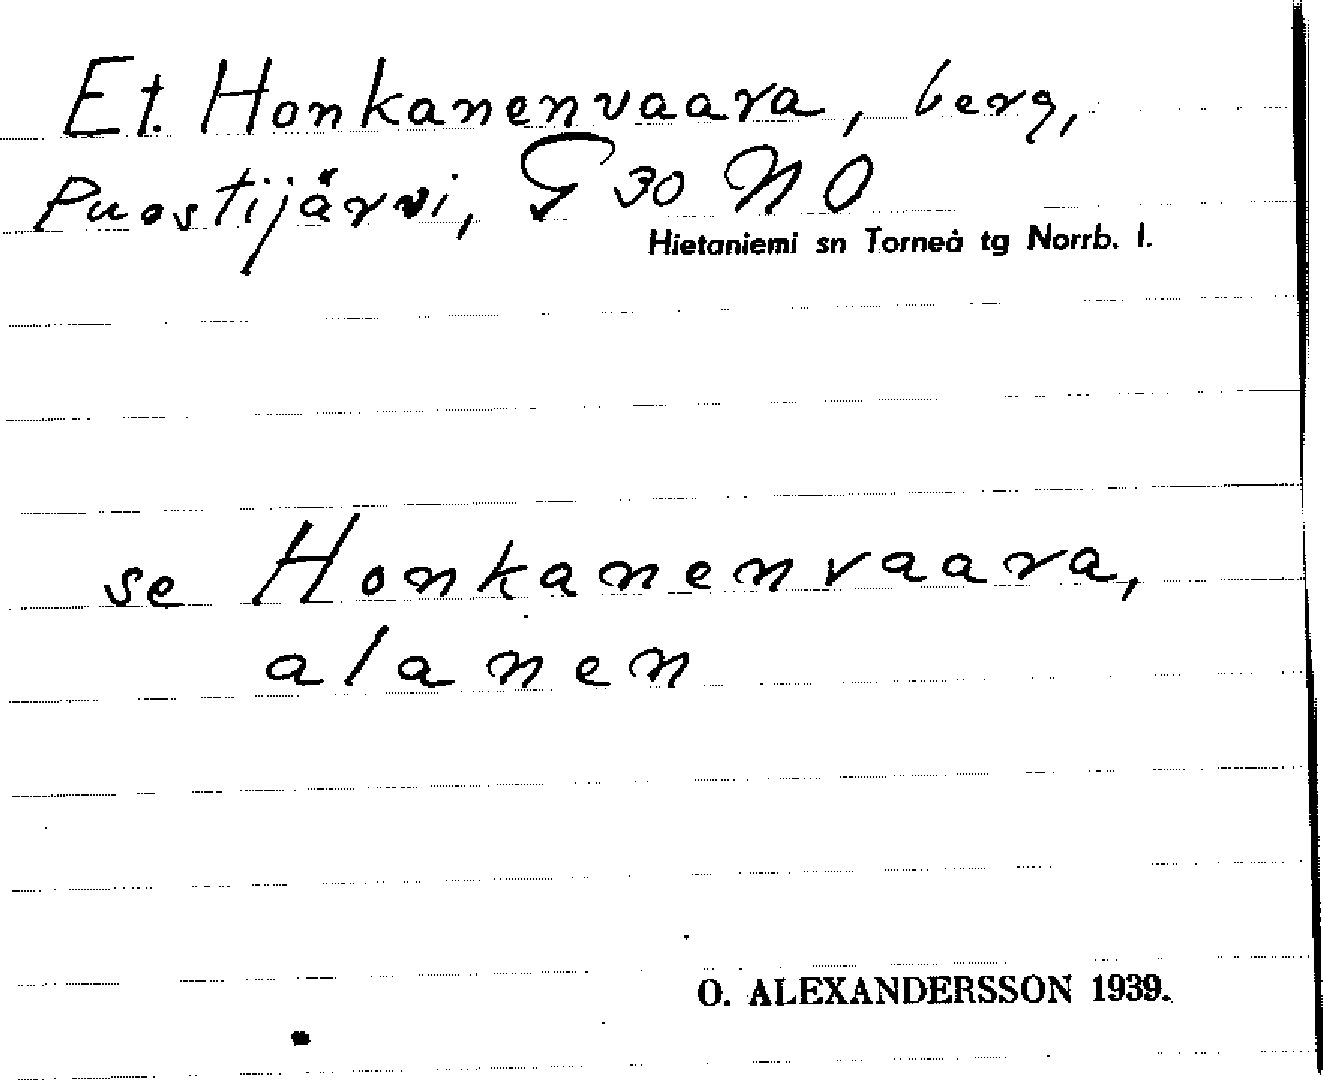 Et. Honkanenvaara, berg,
Puostijärvi, G 30 N O
Hietaniemi sn Torneå tg Norrb. l.
se Honkanenvaara,
alanen
O. ALEXANDERSSON 1939.